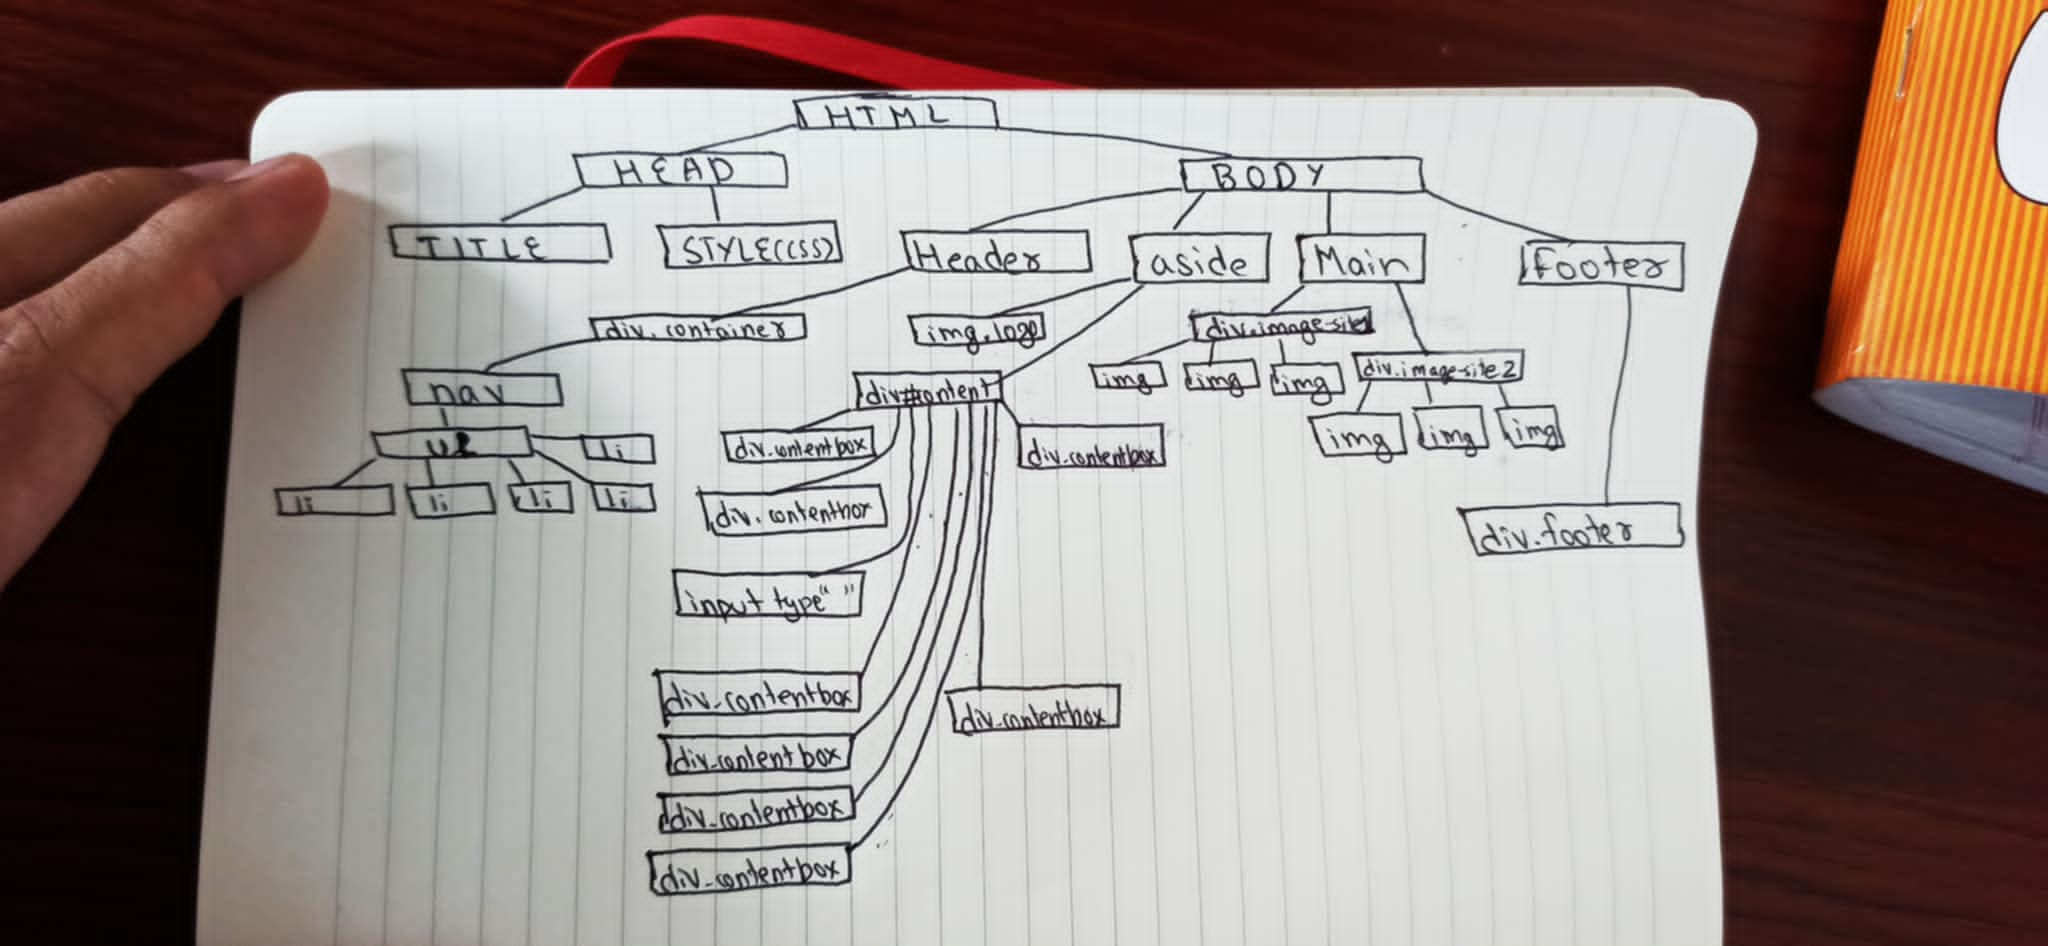 HTML
HEAD
BODY
TITLE
STYLE(CSS)
Header
aside
Main
footer
div.container
img.logo
div.image-site1
nav
div#content
img
img
img
div.image-site2
ul
li
div.contentbox
div.contentbox
img
img
img
li
li
li
li
div.contentbox
div.footer
input type" "
div.contentbox
div.contentbox
div.contentbox
div.contentbox
div.contentbox